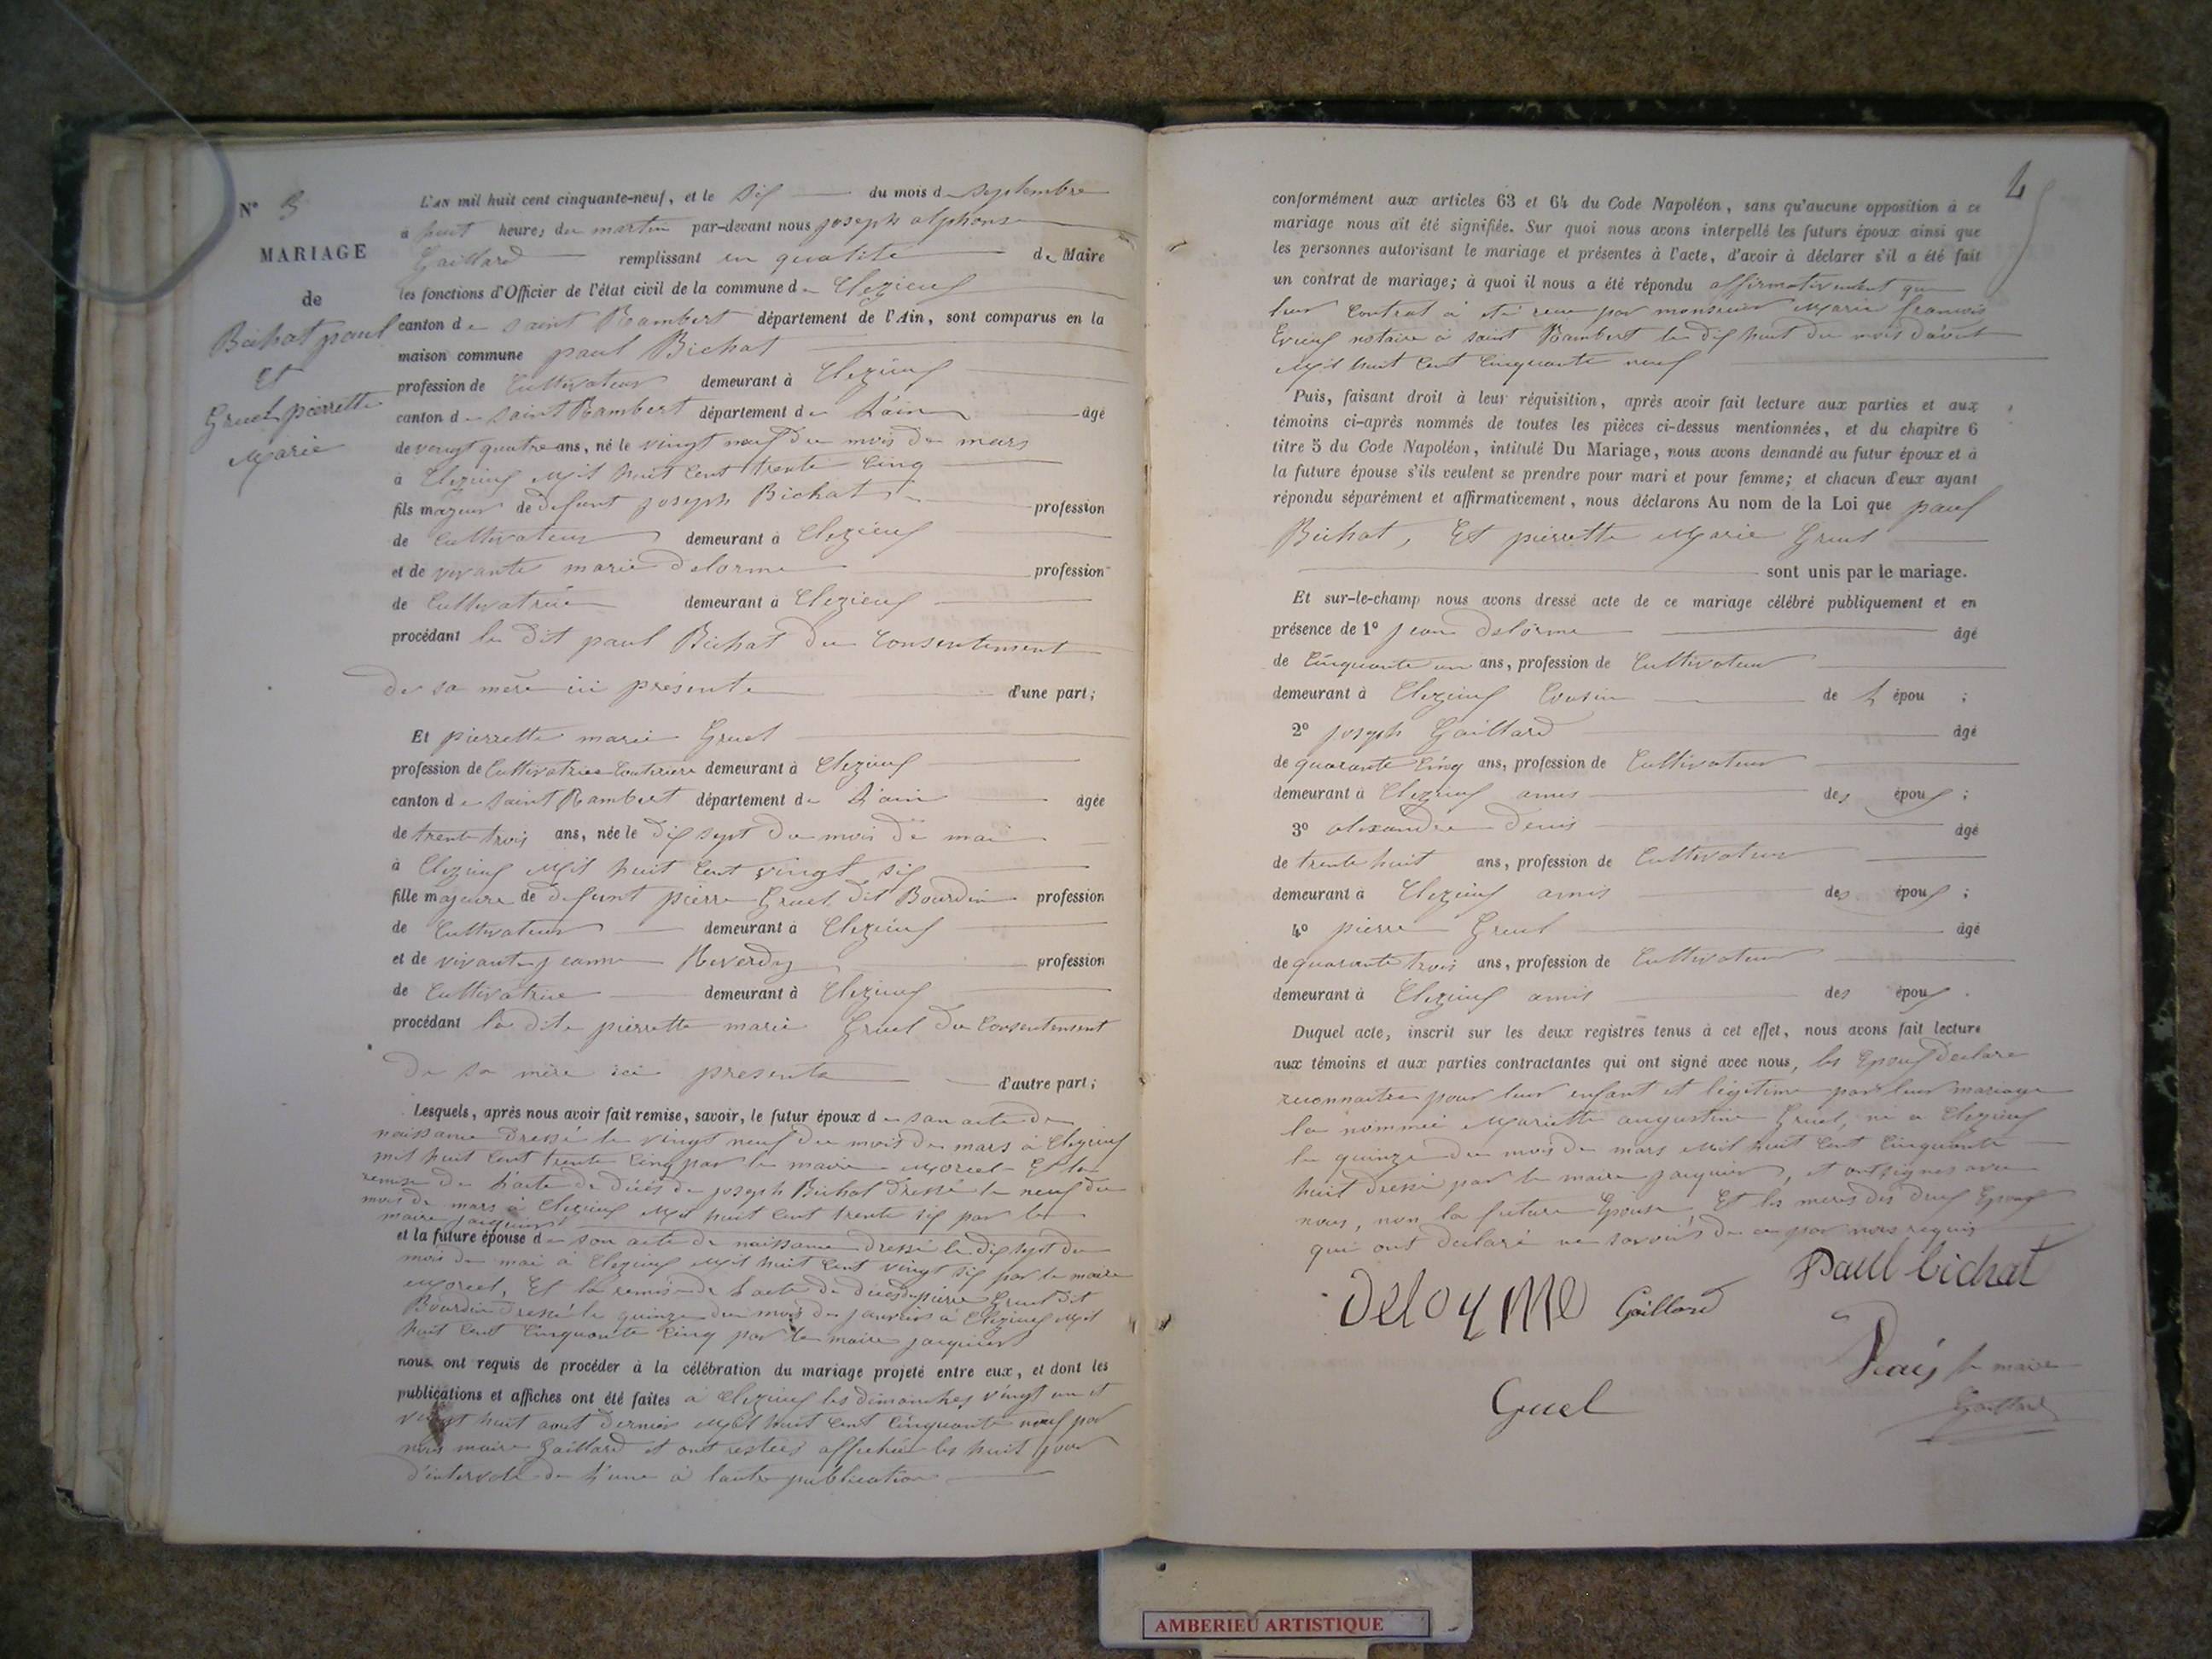 N° 3
MARIAGE
de
Bichat paul
et
Gruel pierrette
Marie
L'AN mil huit cent cinquante-neuf, et le dix du mois de septembre
à huit heures du martin par-devant nous joseph alphonse
Gaillard remplissant en qualité de Maire
les fonctions d'Officier de l'état civil de la commune de Clezieux
canton de saint Rambert département de l'Ain, sont comparus en la
maison commune paul Bichat
profession de Cultivateur demeurant à Clezieux
canton de saint Rambert département de L'ain âgé
de vingt quatre ans, né le vingt neuf du mois de mars
à Clezieux Mil huit Cent trente Cinq
fils majeur de defunt joseph Bichat profession
de Cultivateur demeurant à Clezieux
et de vivante marie delorme profession
de Cultivatrice demeurant à Clezieux
procédant le dit paul Bichat du Consentement
de sa mère ici présente d'une part;
Et pierrette marie Gruel
profession de Cultivatrice Couturiere demeurant à Clezieux
canton de saint Rambert département de L'ain âgée
de trente trois ans, née le dix sept du mois de mai
à Clezieux Mil huit Cent vingt six
fille majeure de defunt pierre Gruel dit Bourdin profession
de Cultivateur demeurant à Clezieux
et de vivante jeanne Reverdy profession
de Cultivatrice demeurant à Clezieux
procédant la dite pierrette marie Gruel du Consentement
de sa mère ici presente d'autre part;
Lesquels, après nous avoir fait remise, savoir, le futur époux de son acte de
naissance dressé le vingt neuf du mois de mars à Clezieux
mil huit Cent trente Cinq par le maire Morel Et la
remise de L'acte de décés de joseph Bichat dressé le neuf du
mois de mars à Clezieux Mil huit Cent trente six par le
maire jacquier
et la future épouse de son acte de naissance dressé le dix sept du
mois de mai à Clezieux Mil huit Cent vingt six par le maire
Morel, Et la remise de L'acte de déces de pierre Gruel dit
Bourdin dressé le quinze du mois de janvier à Clezieux Mil
huit Cent Cinquante Cinq par le maire jacquier
nous ont requis de procéder à la célébration du mariage projeté entre eux, et dont les
publications et affiches ont été faites à Clezieux les dimanches vingt un et
vingt huit aout dernier Mil huit Cent Cinquante neuf par
nous maire Gaillard et ont restées affichées les huit jour
d'intervale de L'une à lautre publication
conformément aux articles 63 et 64 du Code Napoléon, sans qu'aucune opposition à ce
mariage nous ait été signifiée. Sur quoi nous avons interpellé les futurs époux ainsi que
les personnes autorisant le mariage et présentes à l'acte, d'avoir à déclarer s'il a été fait
un contrat de mariage; à quoi il nous a été répondu affirmativement que
leur Contrat à été reçu par monsieur Marie francois
notaire à saint Rambert le dix huit du mois d'aout
Mil huit Cent Cinquante neuf
Puis, faisant droit à leur réquisition, après avoir fait lecture aux parties et aux
témoins ci-après nommés de toutes les pièces ci-dessus mentionnées, et du chapitre 6
titre 5 du Code Napoléon, intitulé Du Mariage, nous avons demandé au futur époux et à
la future épouse s'ils veulent se prendre pour mari et pour femme; et chacun d'eux ayant
répondu séparément et affirmativement, nous déclarons Au nom de la Loi que paul
Bichat, Et pierrette Marie Gruel
sont unis par le mariage.
Et sur-le-champ nous avons dressé acte de ce mariage célébré publiquement et en
présence de 1° jean delorme âgé
de Cinquante un ans, profession de Cultivateur
demeurant à Clezieux Cousin de L épou ;
2° joseph Gaillard âgé
de quarante Cinq ans, profession de Cultivateur
demeurant à Clezieux amis des époux ;
3° alexandre denis âgé
de trente huit ans, profession de Cultivateur
demeurant à Clezieux amis des époux ;
4° pierre Gruel âgé
de quarante trois ans, profession de Cultivateur
demeurant à Clezieux amis des époux .
Duquel acte, inscrit sur les deux registres tenus à cet effet, nous avons fait lecture
aux témoins et aux parties contractantes qui ont signé avec nous, les Epoux declare
reconnaitre pour leur enfant et légitime par leur mariage
la nommée Mariette augustine Gruel, né a Clezieux
le quinze du mois de mars Mil huit Cent Cinquante
huit dressé par le maire jacquier, et ont signés avec
nous, non la future Epouse Et les meres des deux Epoux
qui ont declaré ne savoirs de ce par nous requis
Paul bichat
Delorme Gaillard
le maire
Gaillard
Gruel
AMBERIEU ARTISTIQUE